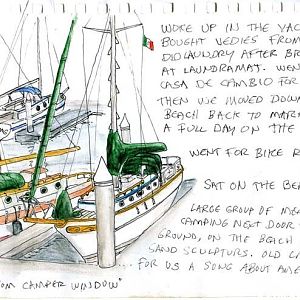 WOKE UP IN THE VAC
BOUGHT VEGIES FROM
DID LAUNDRY AFTER BR
AT LAUNDRAMAT. WEN
CASA DE CAMBIO FOR
THEN WE MOVED DOWN
BEACH BACK TO MAR
A FULL DAY ON THE
WENT FOR BIKE R
SAT ON THE BE
LARGE GROUP OF ME
CAMPING NEXT DOOR
GROUND, ON THE BEACH
SAND SCULPTURS. OLD L
FOR US A SONG ABOUT
OM CAMPER WINDOW"